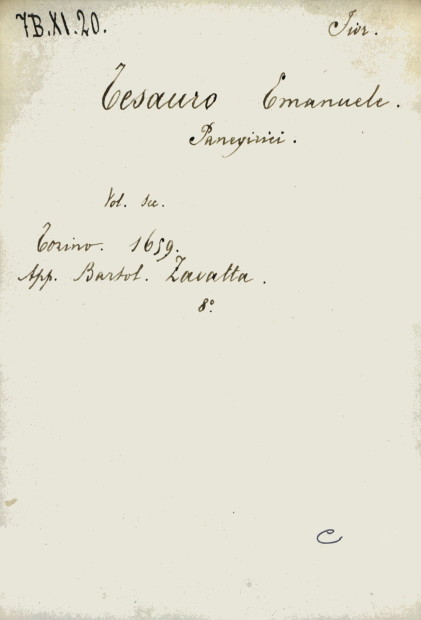 7B.XI.20. Fior.
Tesauro Emanuele.
Panegirici.
Vol. sec.
Torino. 1659.
App. Bartol. Zavatta.
8°
C